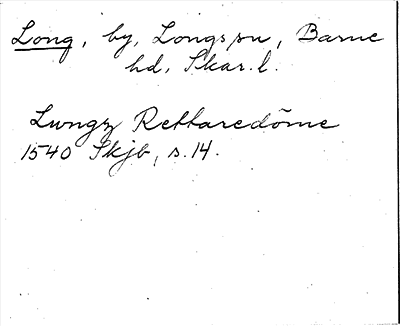 Long, by, Longs sn, Barne
hd, Skar. l.
Lwngz Rettaredöme
1540 Skjb, s. 14.